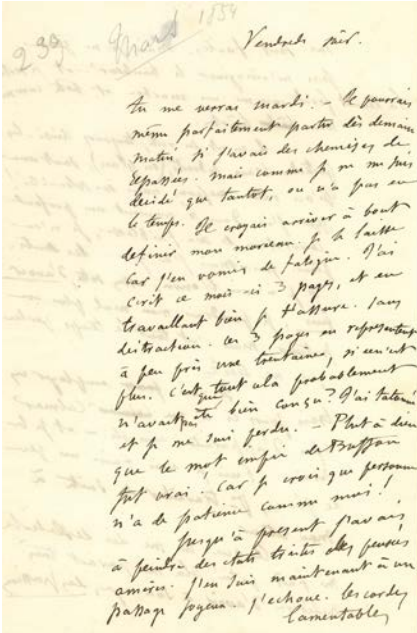 239 Mars 1854
Vendredi soir.
Tu me verras mardi. – Je pourrais
même parfaitement partir dès demain
matin si j'avais des chemises de
repassées. mais comme je ne me suis
décidé que tantôt, on n'a pas eu
le temps. Je croyais arriver à bout
de finir mon morceau. Je le laisse
car j'en vomis de fatigue. J'ai
écrit ce mois-ci 3 pages, et en
travaillant bien je t'assure. Sans
distraction. Ces 3 pages en représentent
à peu près une trentaine, si ce n'est
plus. C'est que tout cela probablement
n'avait pas été bien conçu? J'ai tatonné
et je me suis perdu. – Plut à dieu
que le mot impie de Buffon
fut vrai! Car je crois que personne
n'a de patience comme moi!
Jusqu'à présent j'avais
à peindre des états tristes des pensées
amères. J'en suis maintenant à un
passage joyeux. J'échoue. les cordes
lamentables